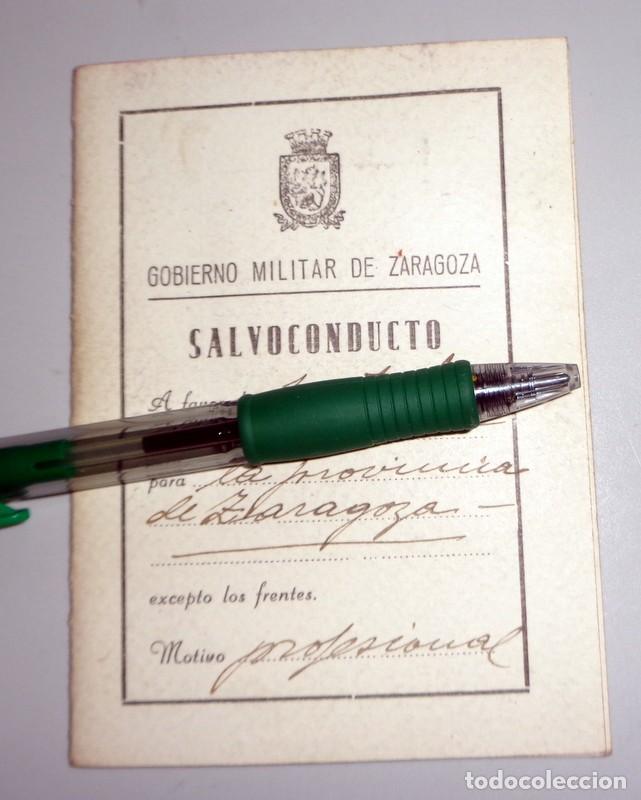 GOBIERNO MILITAR DE ZARAGOZA
SALVOCONDUCTO
A favor
para la provincia
de Zaragoza —
excepto los frentes.
Motivo profesional
todocoleccion